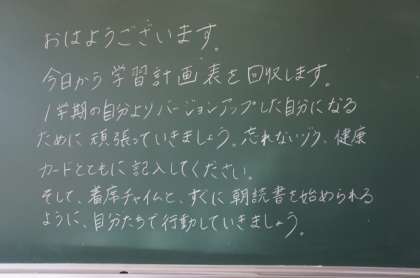 おはようございます。
今日から学習計画表を回収します。
1学期の自分よりバージョンアップした自分になる
ために頑張っていきましょう。忘れないゾウ、健康
カードとともに記入してください。
そして、着席チャイムと、すぐに朝読書を始められる
ように、自分たちで行動していきましょう。